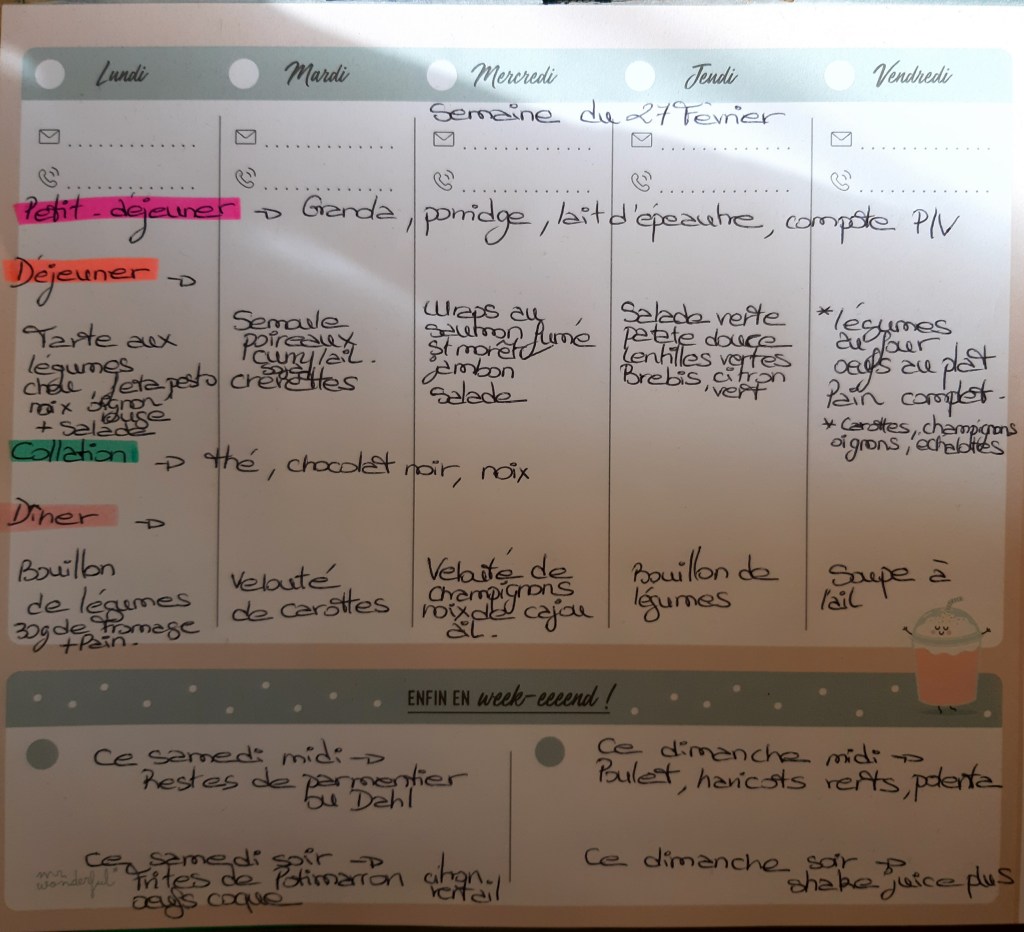 Lundi Mardi Mercredi Jeudi Vendredi
Semaine du 27 Février
Petit-déjeuner → Granola, porridge, lait d'épeautre, compote P/V
Déjeuner →
Tarte aux
légumes
chou, feta pesto
noix oignon
rouge
+ Salade
Semoule
poireaux
curry/ail.
crevettes
Wraps au
saumon fumé
St morêt
jambon
Salade
Salade verte
patate douce
lentilles vertes
Brebis, citron
vert
*légumes
au four
oeufs au plat
Pain complet.
* Carottes, champignons
oignons, échalottes
Collation → thé, chocolat noir, noix
Dîner →
Bouillon
de légumes
30g de fromage
+ Pain.
Velouté
de carottes
Velouté de
champignons
noix de cajou
ail.
Bouillon de
légumes
Soupe à
l'ail
ENFIN EN week-eeeend !
Ce samedi midi →
Restes de parmentier
ou Dahl
Ce samedi soir →
Frites de Potimarron citron
vert ail
oeufs coque
Ce dimanche midi →
Poulet, haricots verts, polenta
Ce dimanche soir →
shake juice plus
mr
wonderful*